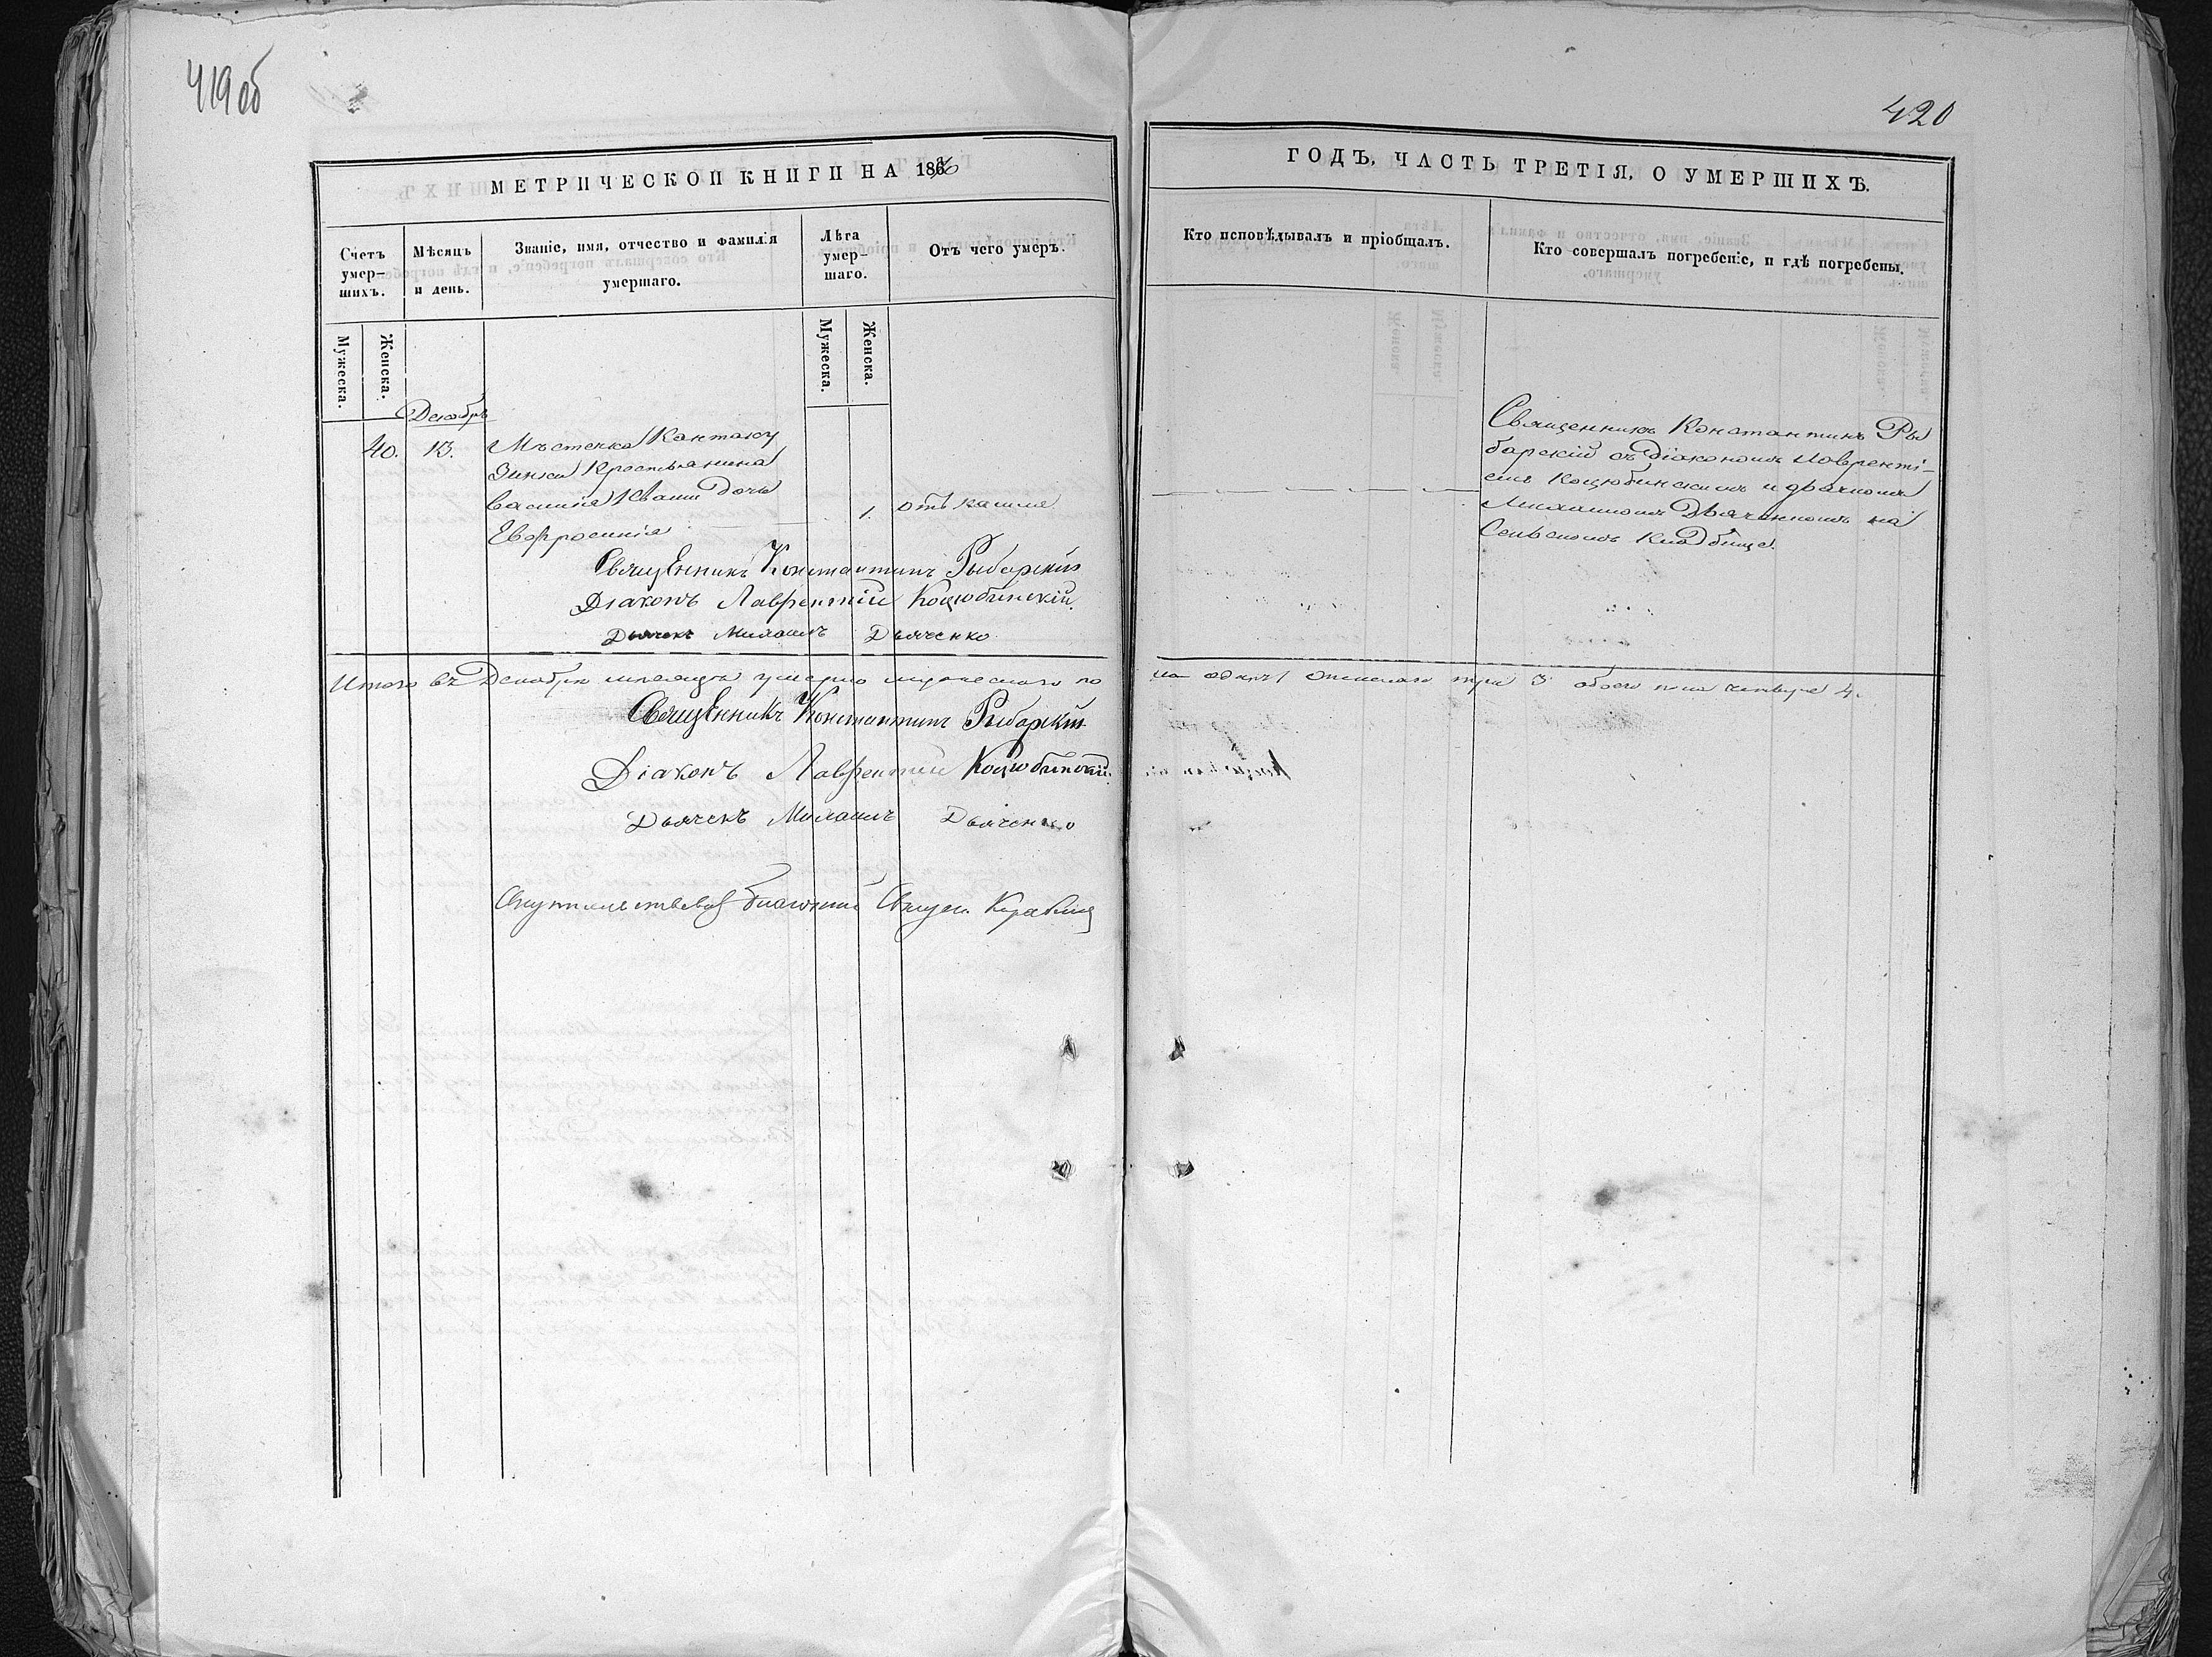 419 об
420
МЕТРИЧЕСКОЙ КНИГИ НА 186
ГОДЪ, ЧАСТЬ ТРЕТІЯ, О УМЕРШИХЪ.
Счетъ умер-
шихъ.
Мѣсяцъ
и день.
Званіе, имя, отчество и фамилія
умершаго.
Лѣта
умер-
шаго.
Отъ чего умеръ.
Кто исповѣдывалъ и пріобщалъ.
Кто совершалъ погребеніе, и гдѣ погребены.
Мужеска.
Женска.
Мужеска.
Женска.
Декабрь
40. 13. Мѣстечка Кантаку
зинки Крестьянина
Василія Кваши дочь
Евфросинія
1. отъ кашля
Священникъ Константинъ Ры
барскій съ Діакономъ Лавренті-
емъ Коцюбинскимъ и дьячкомъ
Михаиломъ Дьяченкомъ на
Сельскомъ Кладбище.
Священникъ Константинъ Рыбарскій
Діаконъ Лаврентій Коцюбинскій.
Дьячекъ Михаилъ Дьяченко
Итого въ Декабрѣ мѣсяцѣ умерло мужескаго по
ла одинъ 1 женскаго три 3 обоего пола четыре 4.
Священникъ Константинъ Рыбарскій
Діаконъ Лаврентій Коцюбинскій.
Дьячекъ Михаилъ Дьяченко